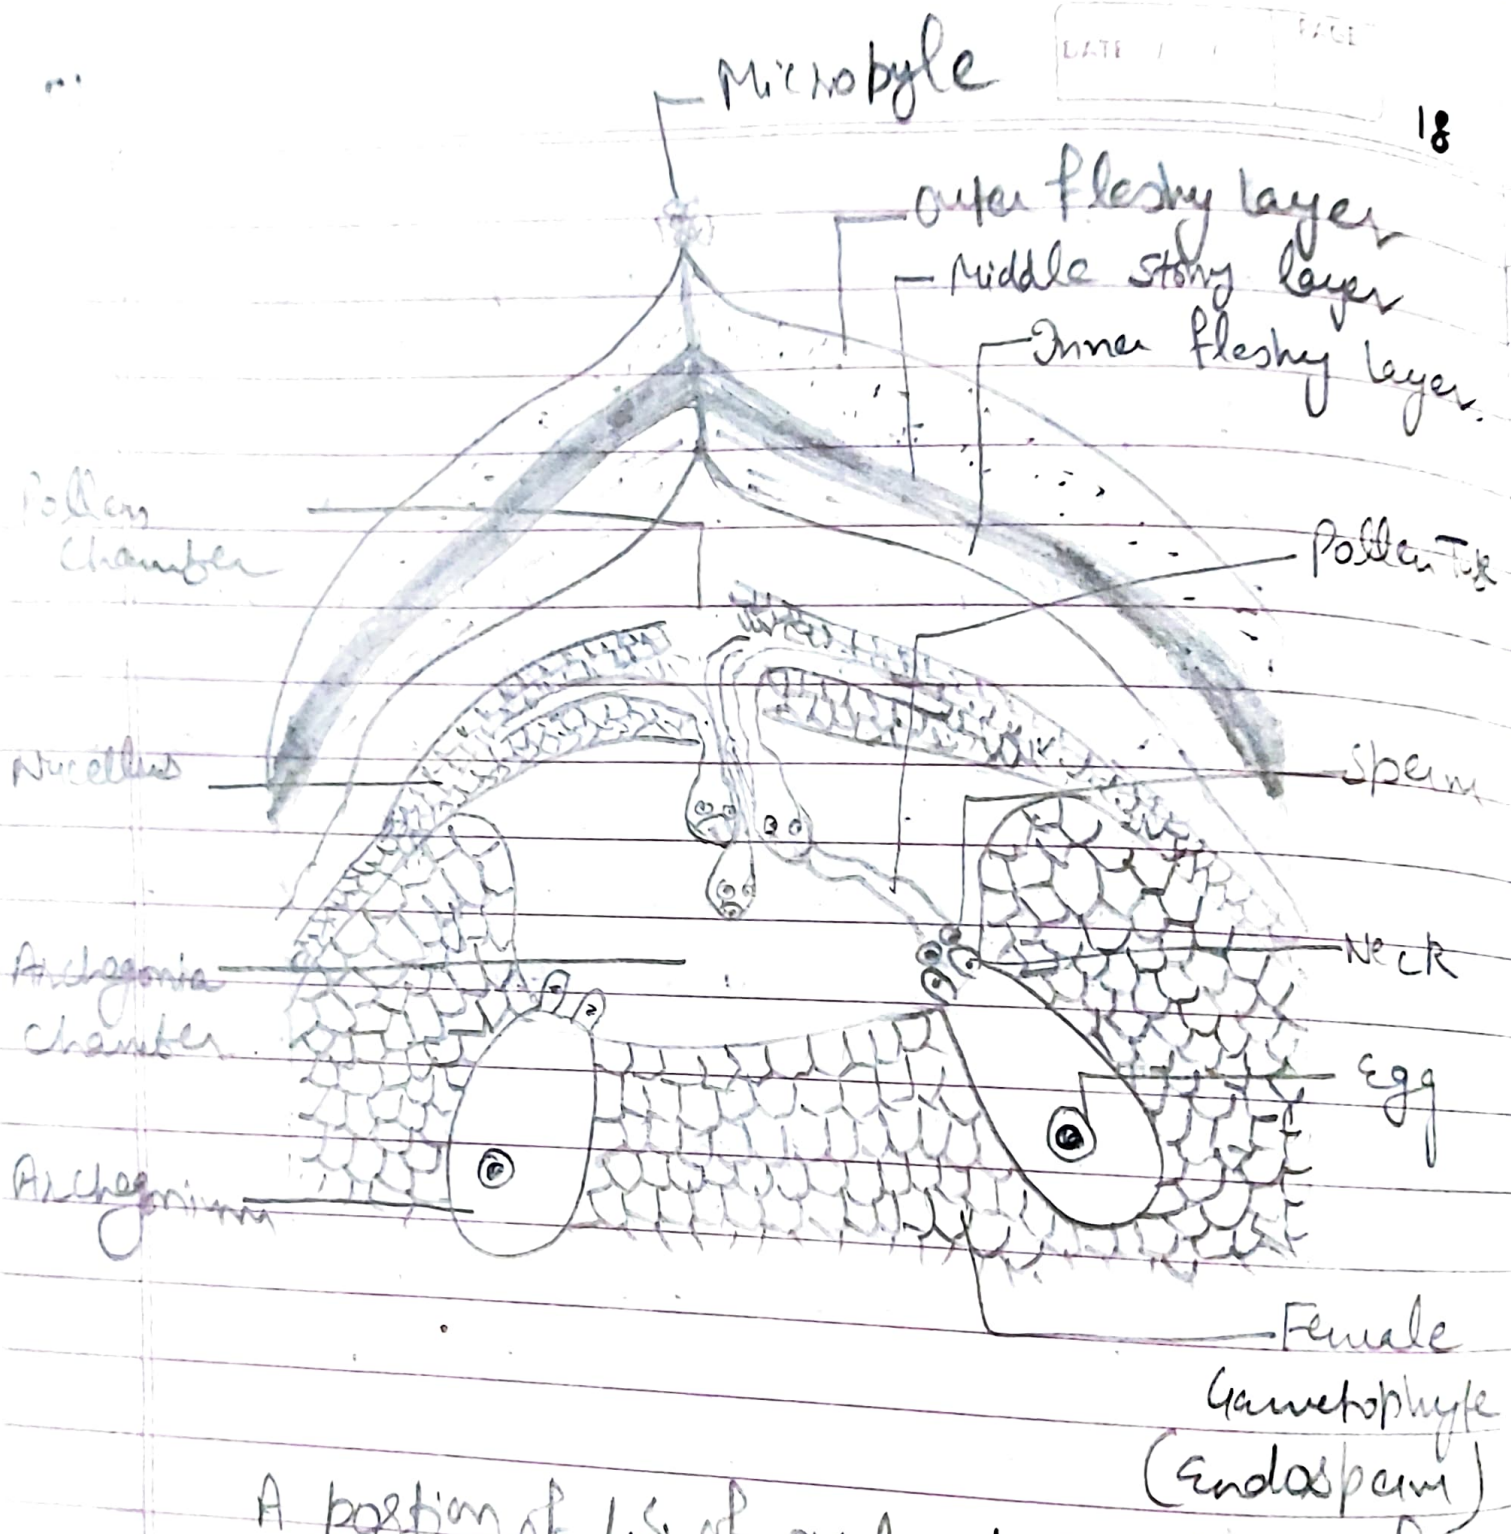 DATE / / PAGE
18
Micropyle
Outer fleshy layer
Middle stony layer
Inner fleshy layer.
Pollen
chamber
Pollen
Nucellus
Sperm
Archegonia
chamber
Neck
Egg
Archegonium
Female
Gametophyte
(Endosperm)
A portion of L.S. of